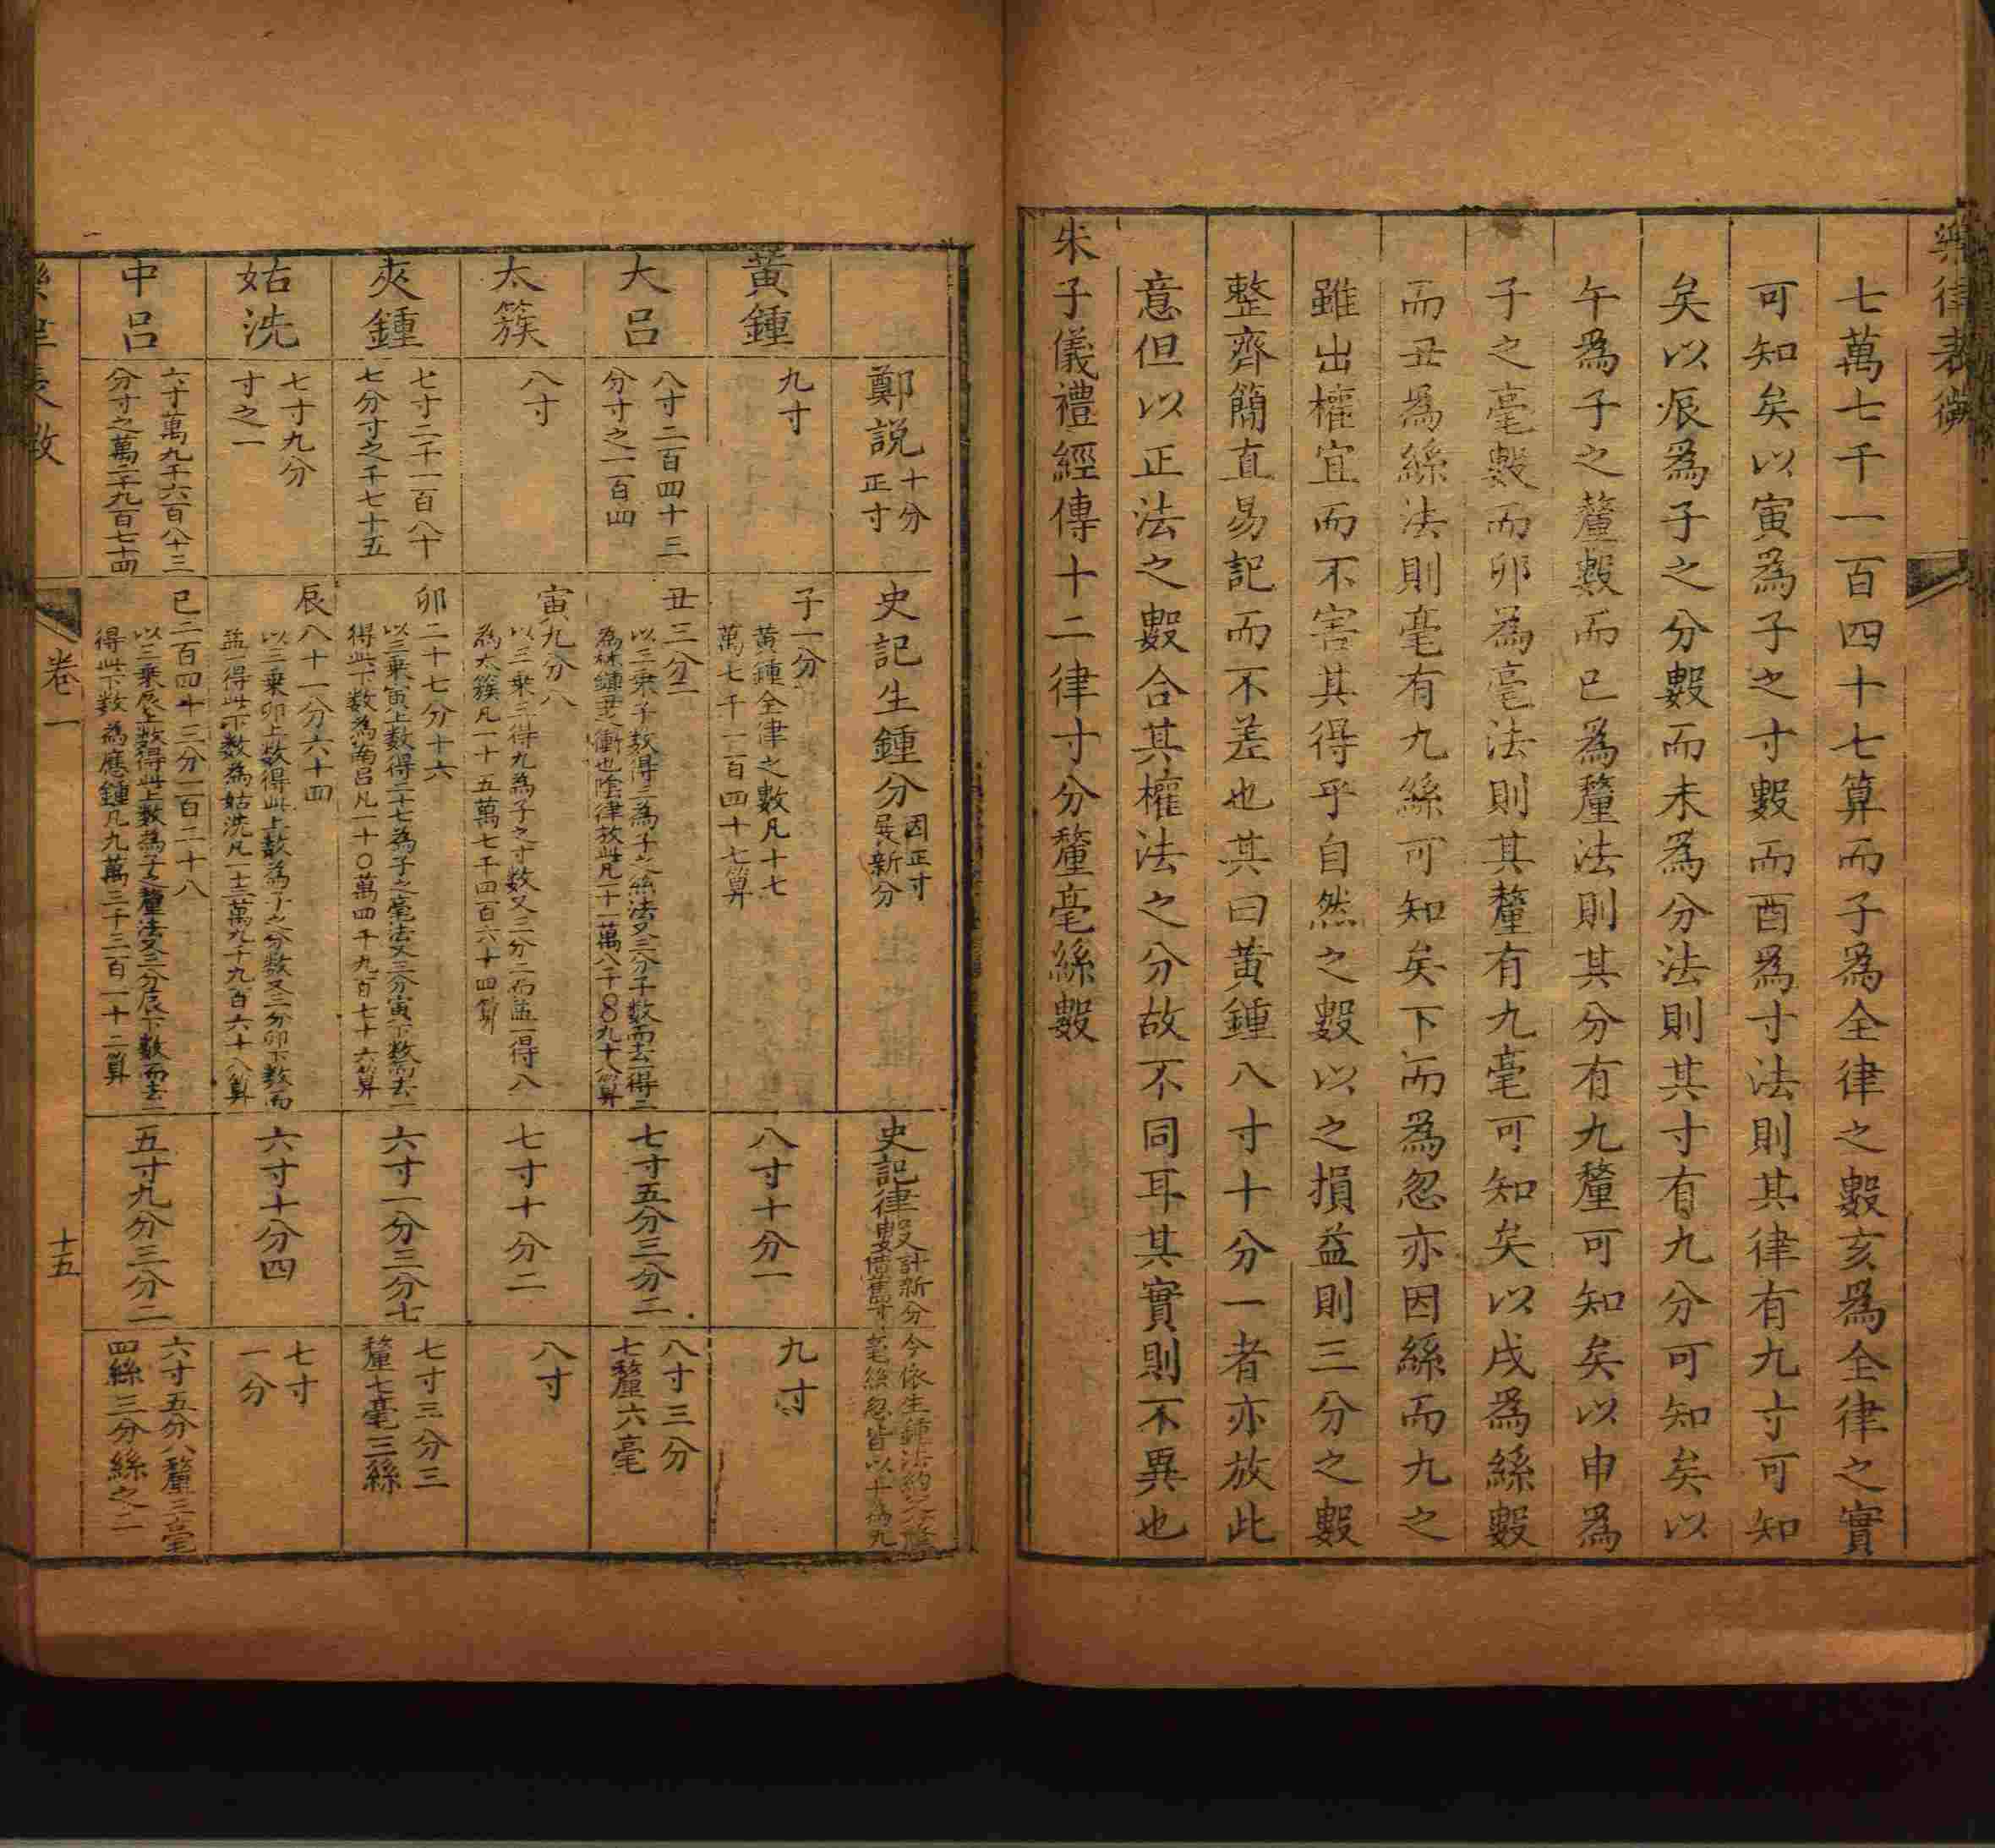 樂律表微
七萬七千一百四十七算而子為全律之數亥為全律之實
可知矣以寅為子之寸數而酉為寸法則其律有九寸可知
矣以辰為子之分數而未為分法則其寸有九分可知矣以
午為子之釐數而巳為釐法則其分有九釐可知矣以申為
子之毫數而卯為毫法則其釐有九毫可知矣以戌為絲數
而丑為絲法則毫有九絲可知矣下而為忽亦因絲而九之
雖出權宜而不害其得乎自然之數以之損益則三分之數
整齊簡直易記而不差也其曰黃鍾八寸十分一者亦放此
意但以正法之數合其權法之分故不同耳其實則不異也
朱子儀禮經傳十二律寸分釐毫絲數
鄭說
十分
正寸
史記生鍾分
因正寸
展新分
史記律數
計新分
債舊寸
今依生鍾法約之釐
毫絲忽皆以十為九
黃鍾
九寸
子一分
黃鍾全律之數凡十七
萬七千一百四十七算
八寸十分一
九寸
大呂
八寸二百四十三
分寸之一百四
丑三分二
以三乘子數得三為子之絲法又三分子數而去一得二
為林鍾丑之衝也陰律放此凡一十一萬八千〇〇九十八算
七寸五分三分二
八寸三分
七釐六毫
太簇
八寸
寅九分八
以三乘三得九為子之寸數又三分二而益一得八
為太簇凡一十五萬七千四百六十四算
七寸十分二
八寸
夾鍾
七寸二千一百八十
七分寸之千七十五
卯二十七分十六
以三乘寅上數得二十七為子之毫法又三分寅下數而去一
得此下數為南呂凡一十〇萬四千九百七十六算
六寸一分三分七
七寸三分三
釐七毫三絲
姑洗
七寸九分
寸之一
辰八十一分六十四
以三乘卯上數得此上數為子之分數又三分卯下數而
益一得此下數為姑洗凡一十三萬九千九百六十八算
六寸十分四
七寸
一分
中呂
六寸萬九千六百八十三
分寸之萬二千九百七十四
巳二百四十三分一百二十八
以三乘辰上數得此上數為子之釐法又三分辰下數而去一
得此下數為應鍾凡九萬三千三百一十二算
五寸九分三分二
六寸五分八釐三毫
四絲三分絲之二
樂律表微
卷一
十五